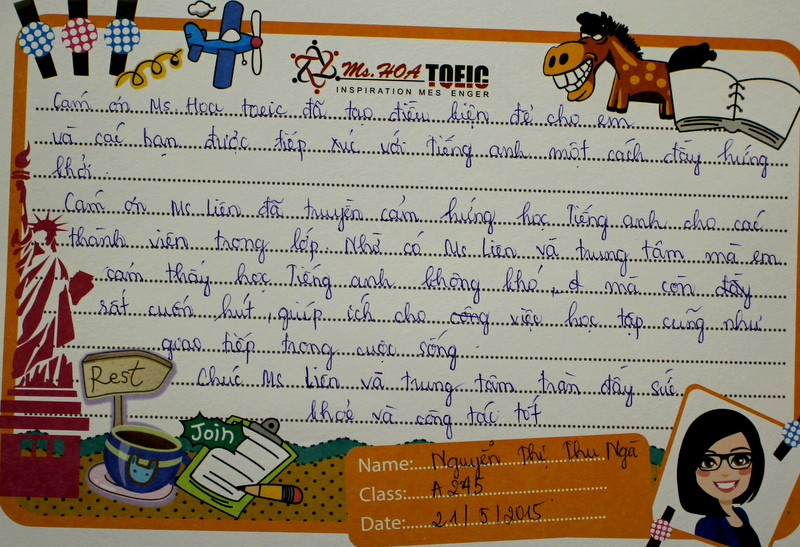 Ms. HOA TOEIC
INSPIRATION MES ENGER
Cám ơn Ms. Hoa toeic đã tạo điều kiện để cho em
và các bạn được tiếp xúc với Tiếng anh một cách đầy hứng
khởi.
Cám ơn Mc Liên đã truyền cảm hứng học Tiếng anh cho các
thành viên trong lớp. Nhờ có Mc Liên và trung tâm mà em
cảm thấy học Tiếng anh không khó, mà còn đầy
rất cuốn hút, giúp ích cho công việc học tập cũng như
giao tiếp trong cuộc sống.
Chúc Mc Liên và trung tâm tràn đầy sức
khoẻ và công tác tốt
Rest
Join
Name: Nguyễn Thị Thu Ngà
Class: A245
Date: 21/5/2015